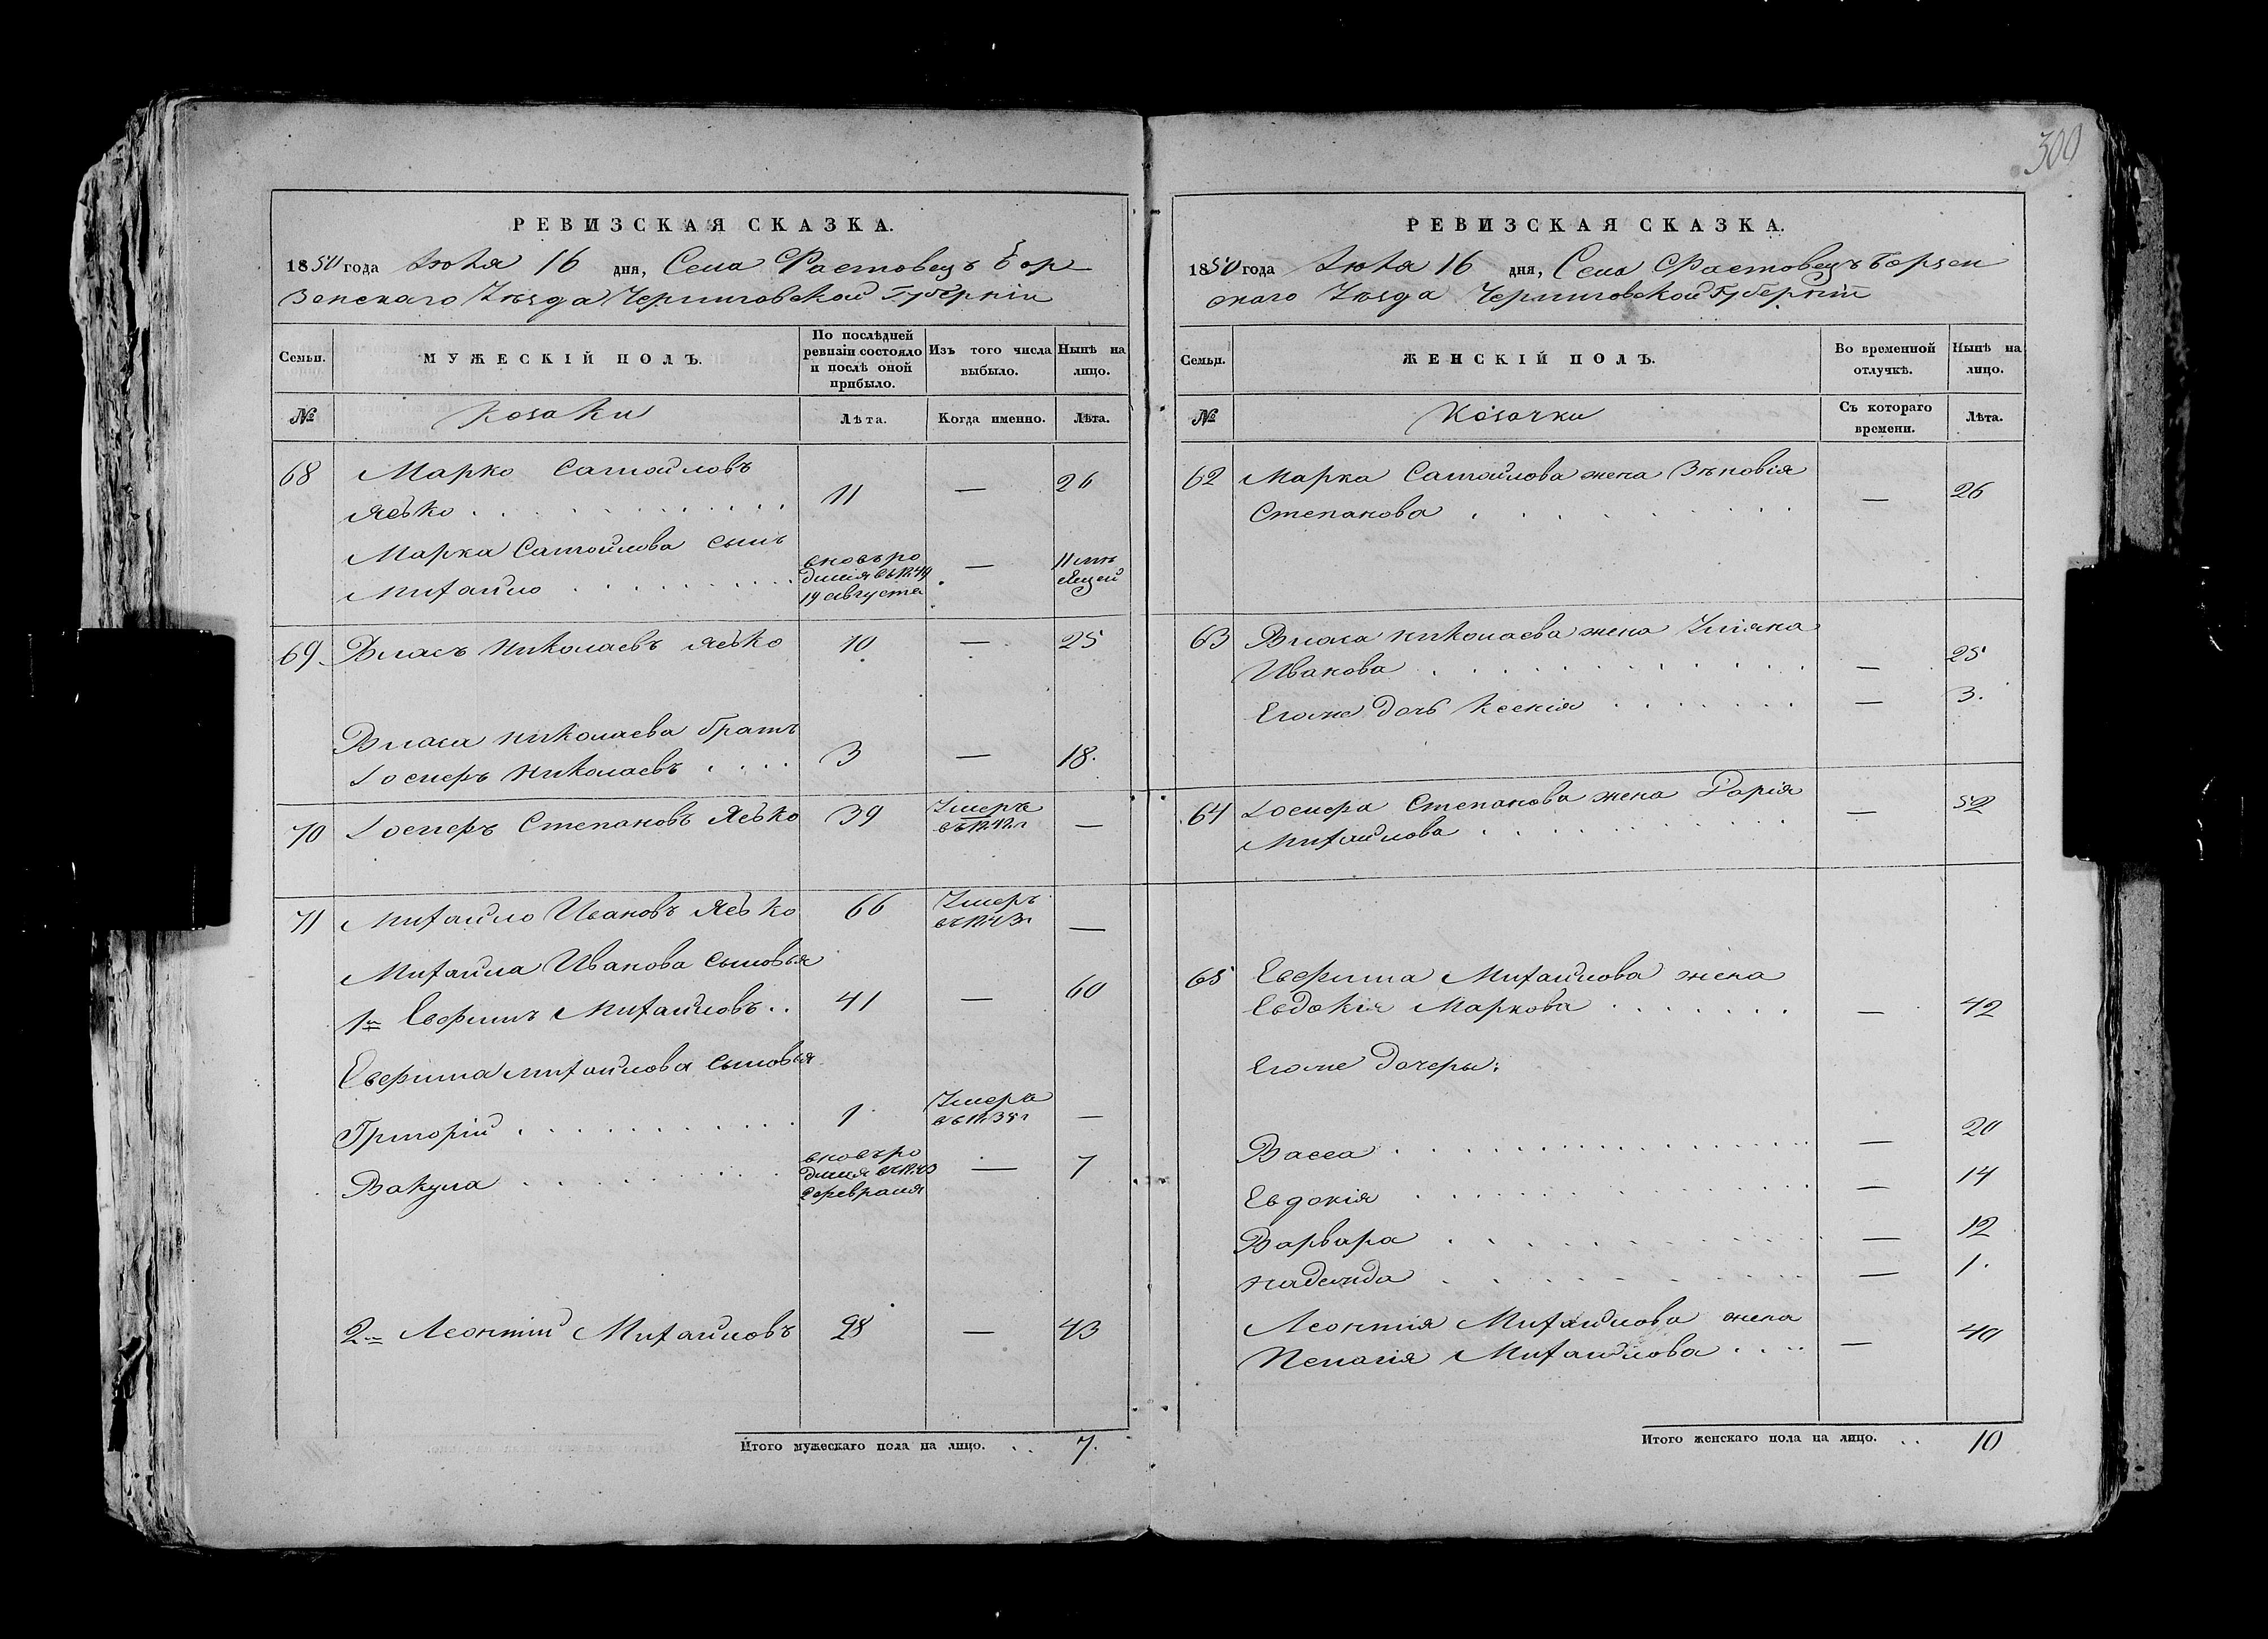 300
РЕВИЗСКАЯ СКАЗКА.
1850 года Июля 16 дня, Села Растовецъ Бор
зенскаго Уѣзда Черниговской Губерніи
Семьи. МУЖЕСКІЙ ПОЛЪ. По послѣдней ревизіи состояло и послѣ оной прибыло. Изъ того числа выбыло. Нынѣ на лицо.
№ Козаки Лѣта. Когда именно. Лѣта.
68 Марко Самойловъ
Ясько 11 — 26
Марка Самойлова сынъ
Михайло вновь ро
дился въ 1849
19 августа — 11 мѣ
сяцей
69 Власъ Николаевъ Ясько 10 — 25
Власа Николаева братъ
Іосифъ Николаевъ 3 — 18.
70 Іосифъ Степановъ Ясько 39 Умеръ
въ 1842 г —
71 Михайло Ивановъ Ясько 66 Умеръ
въ 1843 г —
Михайла Иванова сыновья
1й Евфимъ Михайловъ 41 — 60
Евфима Михайлова сыновья
Григорій 1 Умеръ
въ 1835 г —
Вакула вновь ро
дился въ 1843
февраля — 7
2й Леонтій Михайловъ 28 — 43
Итого мужескаго пола на лицо. 7.
РЕВИЗСКАЯ СКАЗКА.
1850 года Июля 16 дня, Села Растовецъ Борзен
скаго Уѣзда Черниговской Губерніи
Семьи. ЖЕНСКІЙ ПОЛЪ. Во временной отлучкѣ. Нынѣ на лицо.
№ Козачки Съ котораго времени. Лѣта.
62 Марка Самойлова жена Зѣновія
Степанова — 26
63 Власа Николаева жена Уліяна
Иванова — 25
Егоже дочь Ксенія — 3.
64 Іосифа Степанова жена Дарія
Михайлова — 52
65 Евфима Михайлова жена
Евдокія Маркова — 42
Егоже дочеры:
Васса — 20
Евдокія — 14
Варвара — 12
Надежда — 1.
Леонтія Михайлова жена
Пелагія Михайлова — 40
Итого женскаго пола на лицо. 10